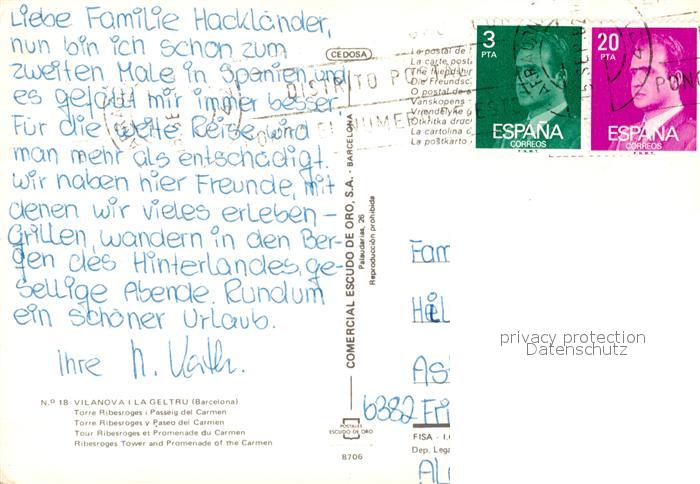 Liebe Familie Hackländer,
nun bin ich schon zum
zweiten Male in Spanien und
es gefällt mir immer besser.
Für die weite Reise wird
man mehr als entschädigt.
Wir haben hier Freunde, mit
denen wir vieles erleben –
Grillen, wandern in den Ber-
gen des Hinterlandes, ge-
sellige Abende. Rundum
ein schöner Urlaub.
Ihre
Nº 18 VILANOVA I LA GELTRU (Barcelona)
Torre Ribesroges i Passeig del Carmen
Torre Ribesroges y Paseo del Carmen
Tour Ribesroges et Promenade du Carmen
Ribesroges Tower and Promenade of the Carmen
CEDOSA
COMERCIAL ESCUDO DE ORO, S.A. - BARCELONA
Palaudarias, 26
Reproducción prohibida
POSTALES
ESCUDO DE ORO
8706
La postal de
La carte post
The friendship
Die Freundsc
O postal de
Vanskopens
Vriendelyke
Otkritka druc
La cartolina
La postkarto
DISTRITO PO
NUMER
PON
3
PTA
ESPAÑA
CORREOS
F.N.M.T.
20
PTA
ESPAÑA
CORREOS
F.N.M.T.
Fam
Hil
As
6382 Fri
FISA - I.
Dep. Lega
privacy protection
Datenschutz